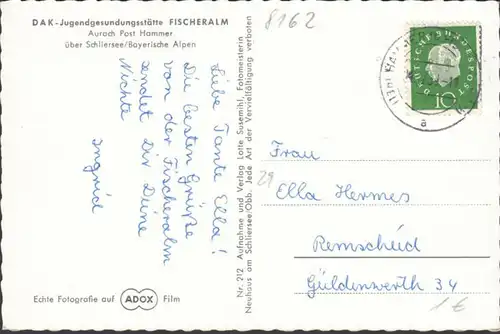 DAK-Jugendgesundungsstätte FISCHERALM
Aurach Post Hammer
über Schliersee/Bayerische Alpen
8162
Liebe Tante Ella!
Die besten Grüße
von der Fischeralm
sendet Dir Deine
Nichte
Ingrid
Echte Fotografie auf ADOX Film
Nr. 212 Aufnahme und Verlag Lotte Susemihl, Fotomeisterin
Neuhaus am Schliersee/Obb. Jede Art der Vervielfältigung verboten
DEUTSCHE BUNDESPOST
10
a
Frau
29
Ella Hermes
Remscheid
Güldenwerth 34
1€